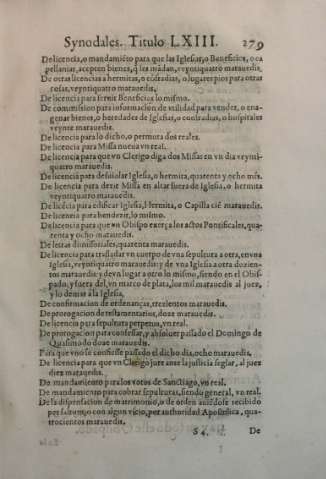 Synodales. Titulo LXIII. 279
De licencia, o mandamiẽto para que las Iglesias, o Beneficios, o ca
pellanias, acepten bienes, q̃ les mãdan, veyntiquatro marauedis.
De otras licencias a hermitas, o cofradias, o lugares pios para otras
cosas, veyntiquatro marauedis.
De licencia para seruir Beneficios lo mismo.
De commission para informacion de vtilidad para vender, o ena-
genar bienes, o heredades de Iglesias, o confradias, o hospitales
veynte marauedis.
De licencia para lo dicho, o permuta dos reales.
De licencia para Missa nueua vn real.
De licencia para que vn Clerigo diga dos Missas en vn dia veynti-
quatro marauedis.
De licencia para desuiolar Iglesia, o hermita, quarenta y ocho mẽs.
De licencia para dezir Missa en altar fuera de Iglesia, o hermita
veyntiquatro marauedis.
De licẽcia para edificar Iglesia, Hermita, o Capilla ciẽ marauedis.
De licencia para bendezir, lo mismo.
De licencia para que vn Obispo exerça los actos Pontificales, qua-
renta y ocho marauedis.
De letras dimissoriales, quarenta marauedis.
De licencia para trasladar vn cuerpo de vna sepultura a otra, en vna
Iglesia, veyntiquatro marauedis: y de vna Iglesia a otra dozien-
tos marauedis: y de vn lugar a otro lo mismo, siendo en el Obis-
pado, y fuera del, vn marco de plata, los mil marauedis al juez,
y lo demas a la Iglesia,
De confirmacion de ordenanças, trezientos marauedis.
De prorogacion de testamentarios, doze marauedis.
De licencia para sepultura perpetua, vn real.
De prorogacion para confessar, y absoluer passado el Domingo de
Quasimodo doze marauedis.
Para que vno se confiesse passado el dicho dia, ocho marauedis.
De licencia para que vn Clerigo jure ante la justicia seglar, al juez
diez marauedis.
De mandamiento para los votos de Sanctiago, vn real.
De mandamiento para cobrar sepulturas, siendo general, vn real.
De la dispensacion de matrimonio, o de orden auiẽdose recibido
per saltum, o con algun vicio, por authoridad Apostolica, qua-
trocientos marauedis.
S4. De